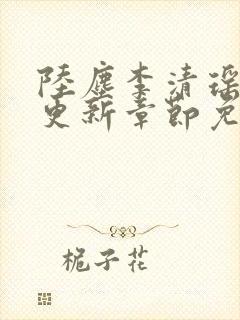 陸塵李清瑶
更新章節免
栀子花